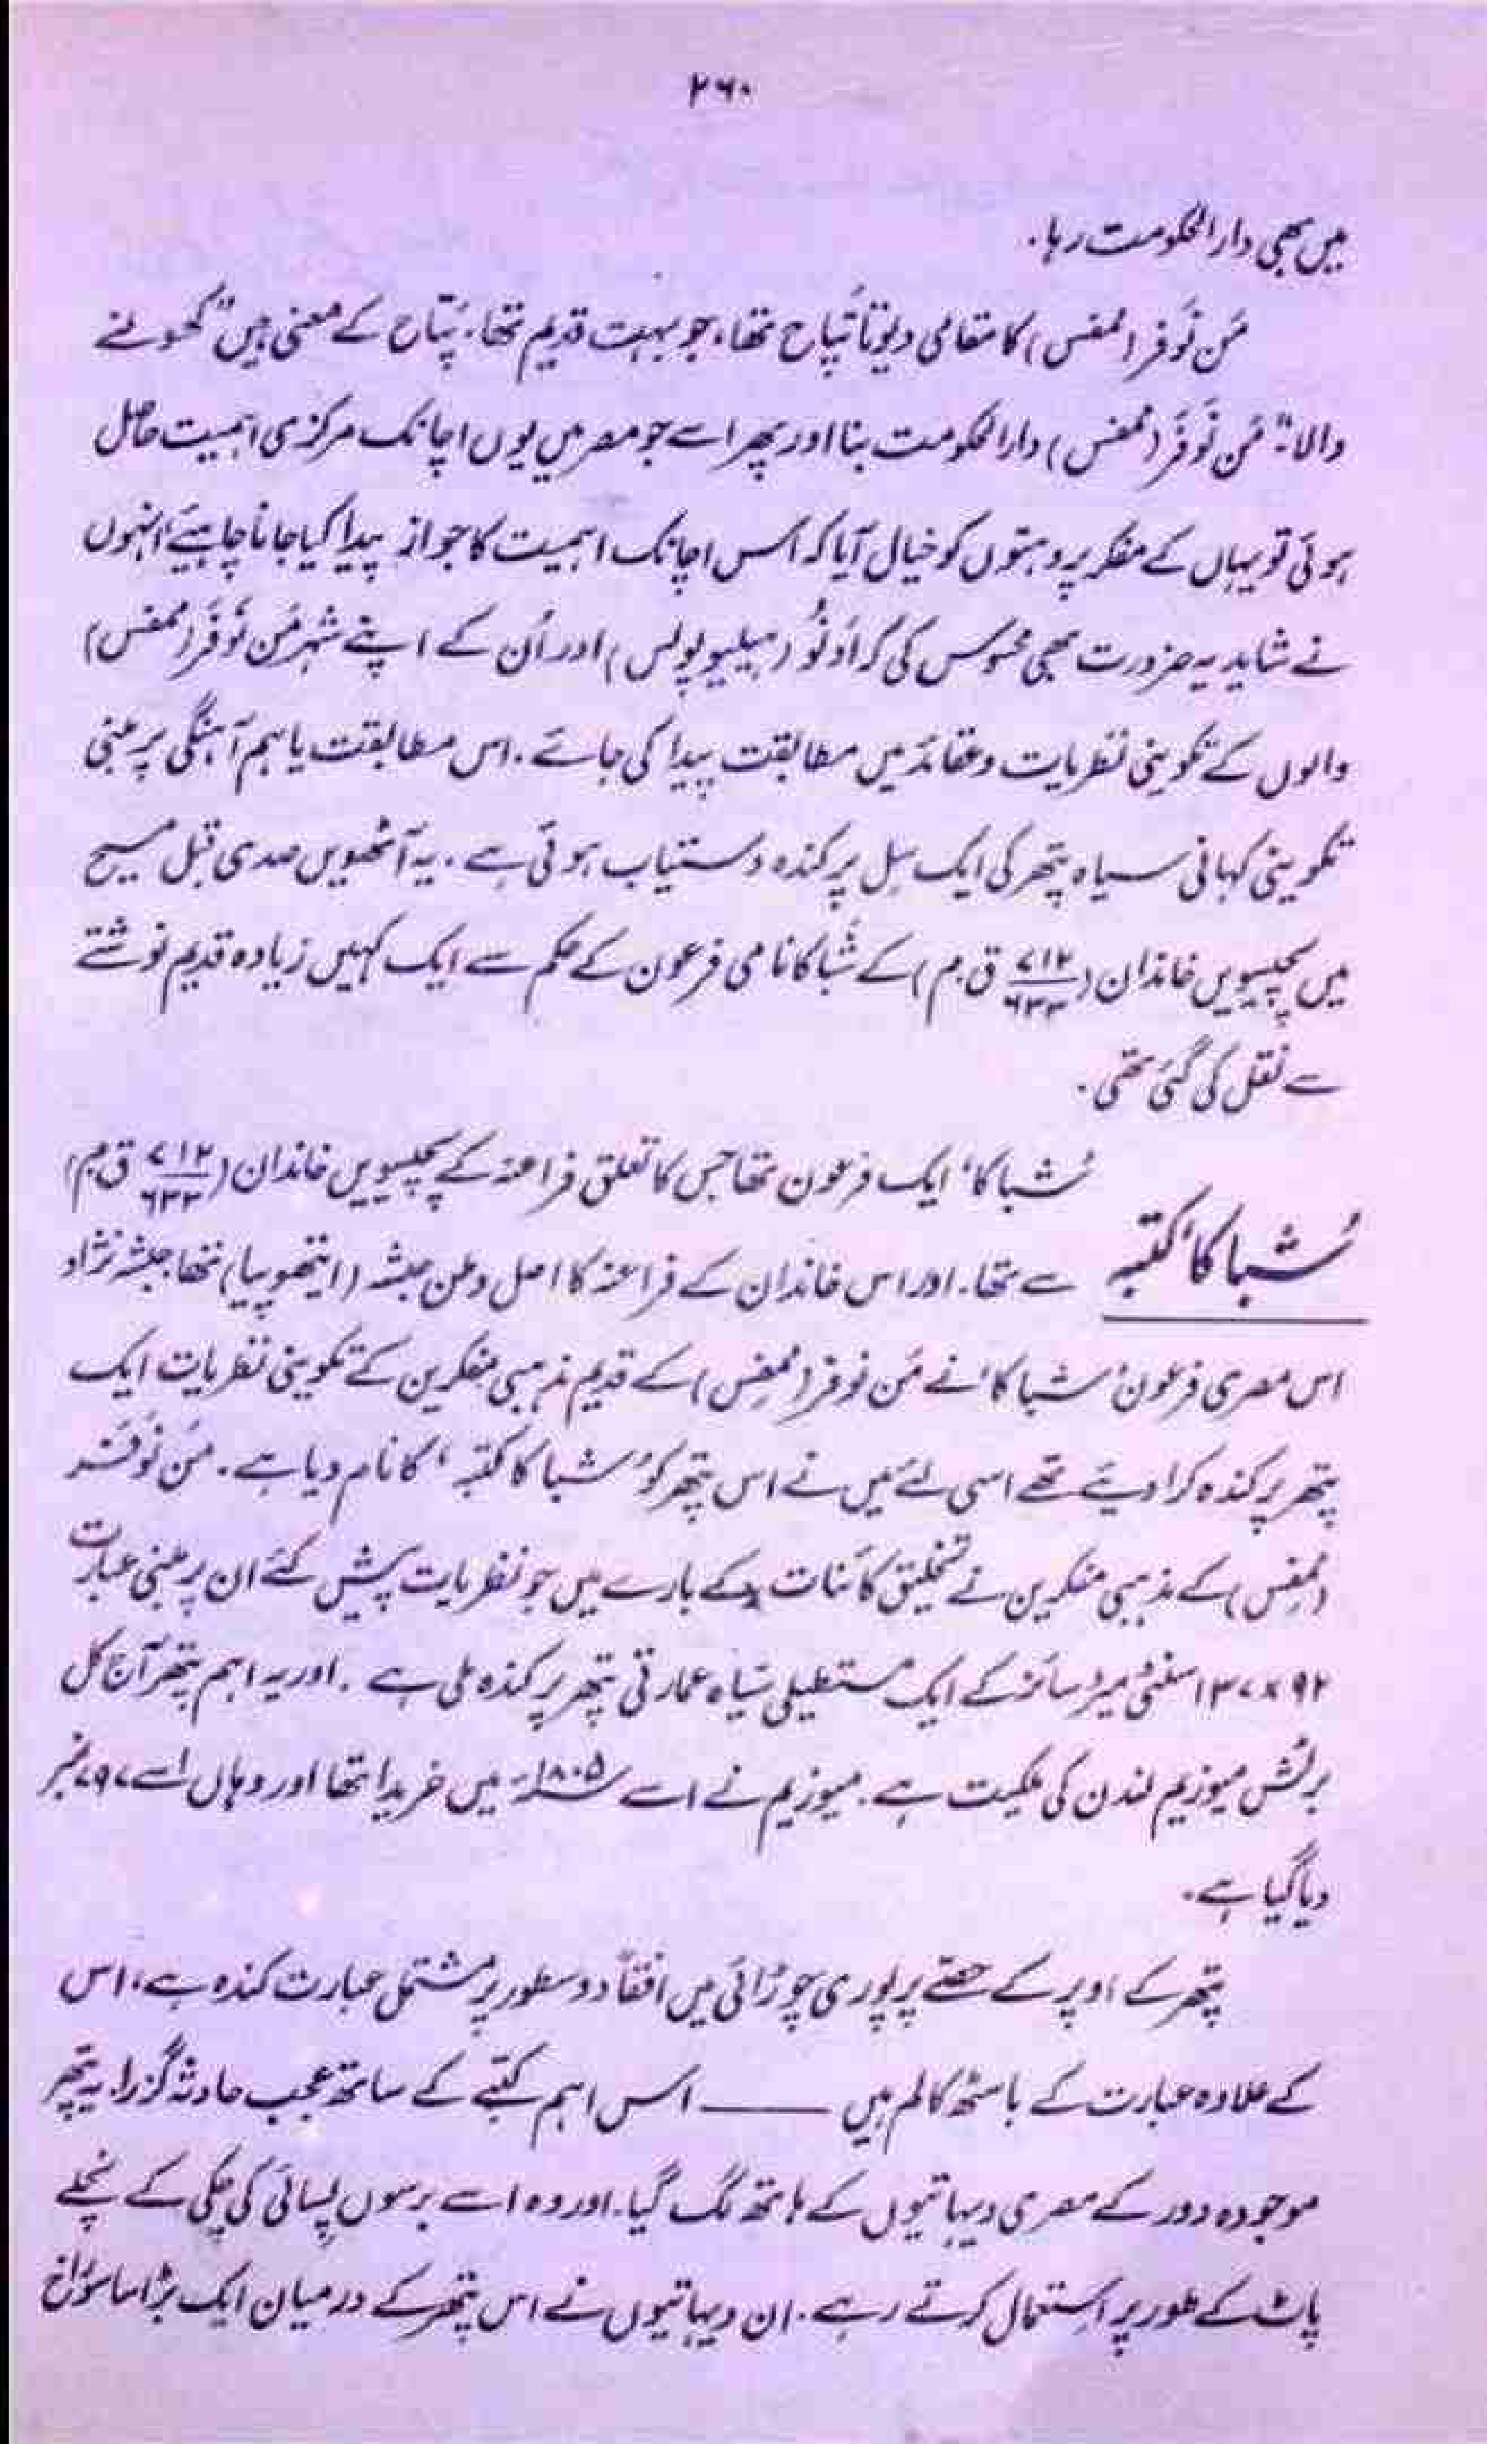 ۲۶۰
میں بھی دارالحکومت رہا۔
مَن نَوفر (ممفس) کا مقامی دیوتا پتاح تھا، جو بہت قدیم تھا۔ پتاح کے معنی ہیں "کھولنے
والا"۔ مَن نَوفَر (ممفس) دارالحکومت بنا اور پھر اسے جو مصر میں یوں اچانک مرکزی اہمیت حاصل
ہوئی تو یہاں کے مفکر پروہتوں کو خیال آیا کہ اس اچانک اہمیت کا جواز پیدا کیا جانا چاہیئے، انہوں
نے شاید یہ ضرورت بھی محسوس کی کہ اَونُو (ہیلیوپولس) اور اُن کے اپنے شہر مَن نَوفَر (ممفس)
والوں کے تکوینی نظریات و عقائد میں مطابقت پیدا کی جائے۔ اس مطابقت یا ہم آہنگی پر مبنی
تکوینی کہانی سیاہ پتھر کی ایک سِل پر کندہ دستیاب ہوئی ہے۔ یہ آٹھویں صدی قبل مسیح
میں پچیسویں خاندان (۷۱۲/۶۳۳ ق۔م) کے شَباکا نامی فرعون کے حکم سے ایک کہیں زیادہ قدیم نوشتے
سے نقل کی گئی تھی۔
شُباکا کتبہ
'شباکا' ایک فرعون تھا جس کا تعلق فراعنہ کے پچیسویں خاندان (۷۱۲/۶۳۳ ق م)
سے تھا۔ اور اس خاندان کے فراعنہ کا اصل وطن حبشہ (ایتھوپیا) تھا، حبشہ نژاد
اس مصری فرعون 'شباکا' نے مَن نوفر (ممفِس) کے قدیم مذہبی مفکرین کے تکوینی نظریات ایک
پتھر پر کندہ کرا دیئے تھے اسی لئے میں نے اس پتھر کو 'شباکا کتبہ' کا نام دیا ہے۔ مَن نَوفَر
(ممفِس) کے مذہبی مفکرین نے تخلیق کائنات کے بارے میں جو نظریات پیش کئے ان پر مبنی عبارت
۹۲×۱۳۷ سنٹی میٹر سائز کے ایک مستطیلی سیاہ عمارتی پتھر پر کندہ ملی ہے۔ اور یہ اہم پتھر آج کل
برٹش میوزیم لندن کی ملکیت ہے۔ میوزیم نے اسے ۱۸۰۵ء میں خریدا تھا اور وہاں اسے ۷۹۷ نمبر
دیا گیا ہے۔
پتھر کے اوپر کے حصّے پر پوری چوڑائی میں افقاً دو سطور پر مشتمل عبارت کندہ ہے، اس
کے علاوہ عبارت کے باسٹھ کالم ہیں ——— اس اہم کتبے کے ساتھ عجب حادثہ گزرا۔ یہ پتھر
موجودہ دور کے مصری دیہاتیوں کے ہاتھ لگ گیا۔ اور وہ اسے برسوں پسائی کی چکی کے نچلے
پاٹ کے طور پر استعمال کرتے رہے۔ ان دیہاتیوں نے اس پتھر کے درمیان ایک بڑا سا سوراخ